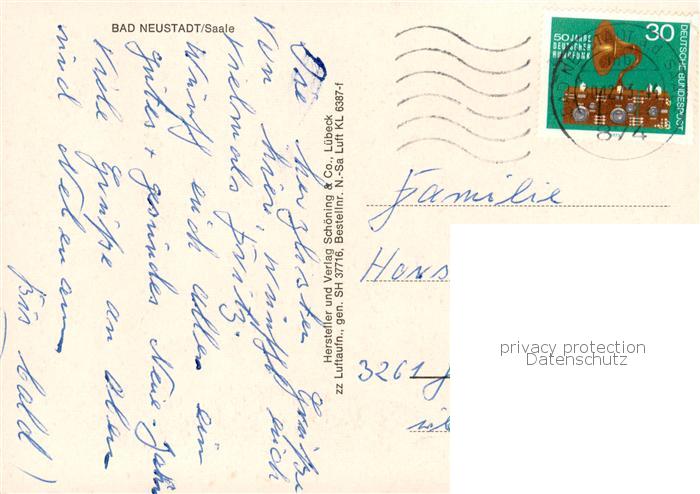 BAD NEUSTADT/Saale
Die herzlisten Grüße
von hier, wünscht euch
vielmals Fritz.
Wünsch euch allen ein
gutes + gesundes Neue-Jahr
Viele Grüße an allen
sind Neben an
Bis bald
Hersteller und Verlag Schöning & Co., Lübeck
zz Luftaufn., gen. SH 37716, Bestellnr. N.-Sa Luft KL 6387-f
50 JAHRE
DEUTSCHER
RUNDFUNK
30
DEUTSCHE BUNDESPOST
874
Familie
Hans
3261
privacy protection
Datenschutz